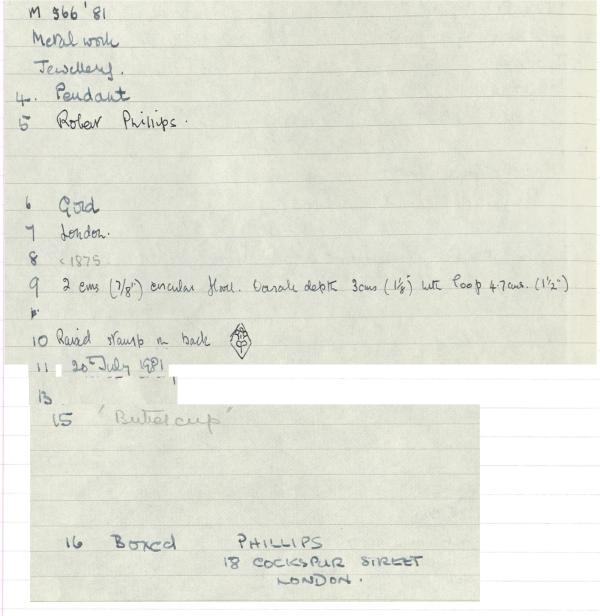 M 966 '81
Metalwork
Jewellery.
4. Pendant
5 Robert Phillips.
6 Gold
7 London.
8 <1875
9 2 cms (7/8") circular floret. overall depth 3cms (1 1/8") with loop 4.7cms. (1 1/2")
10 Raised stamp on back
11 20th July 1981
13
15 'Buttercup'
16 Boxed PHILLIPS
18 COCKSPUR STREET
LONDON.